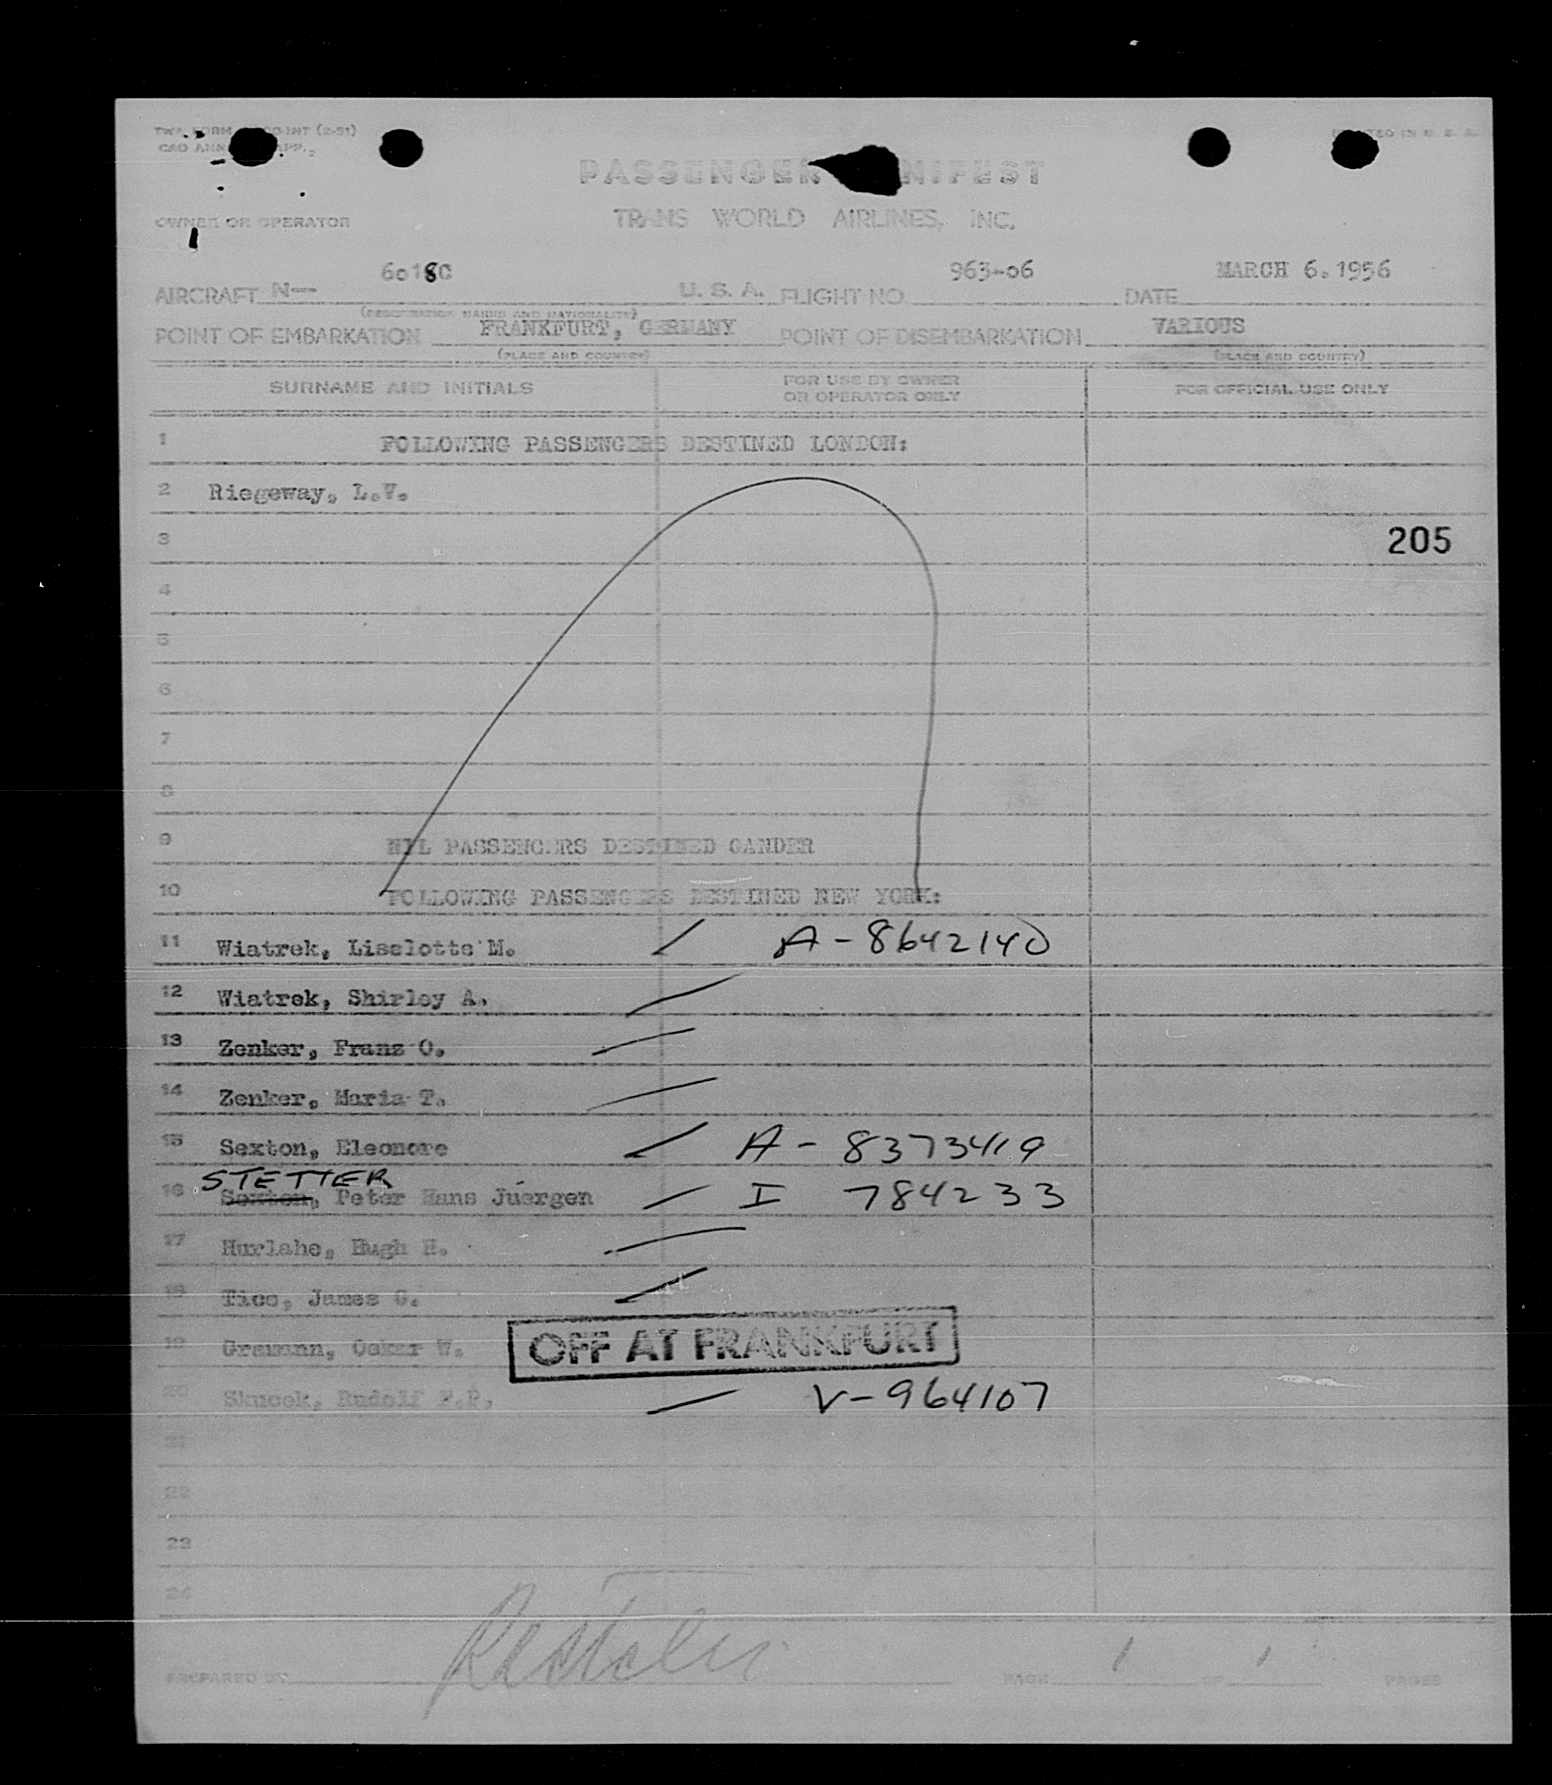 TWA FORM INT (2-51)
CAO ANN APP.
PRINTED IN U. S. A.
PASSENGER MANIFEST
OWNER OR OPERATOR TRANS WORLD AIRLINES, INC.
AIRCRAFT N— 6018C U. S. A. FLIGHT NO. 963-06 DATE MARCH 6. 1956
(REGISTRATION MARKS AND NATIONALITY)
POINT OF EMBARKATION FRANKFURT, GERMANY POINT OF DISEMBARKATION VARIOUS
(PLACE AND COUNTRY) (PLACE AND COUNTRY)
SURNAME AND INITIALS FOR USE BY OWNER OR OPERATOR ONLY FOR OFFICIAL USE ONLY
1 FOLLOWING PASSENGERS DESTINED LONDON:
2 Riegeway, L.V.
3 205
4
5
6
7
8
9 NIL PASSENGERS DESTINED GANDER
10 FOLLOWING PASSENGERS DESTINED NEW YORK:
11 Wiatrek, Liselotte M. A-8642140
12 Wiatrek, Shirley A.
13 Zenker, Franz O.
14 Zenker, Maria T.
15 Sexton, Eleonore A-8373419
STETTER
16 Sexton, Peter Hans Juergen I 784233
17 Hurlahe, Hugh H.
18 Tice, James G.
19 Gramann, Oskar W. OFF AT FRANKFURT
20 Skucek, Rudolf F.P. V-964107
21
22
23
24
PREPARED BY PAGE 1 OF 1 PAGES